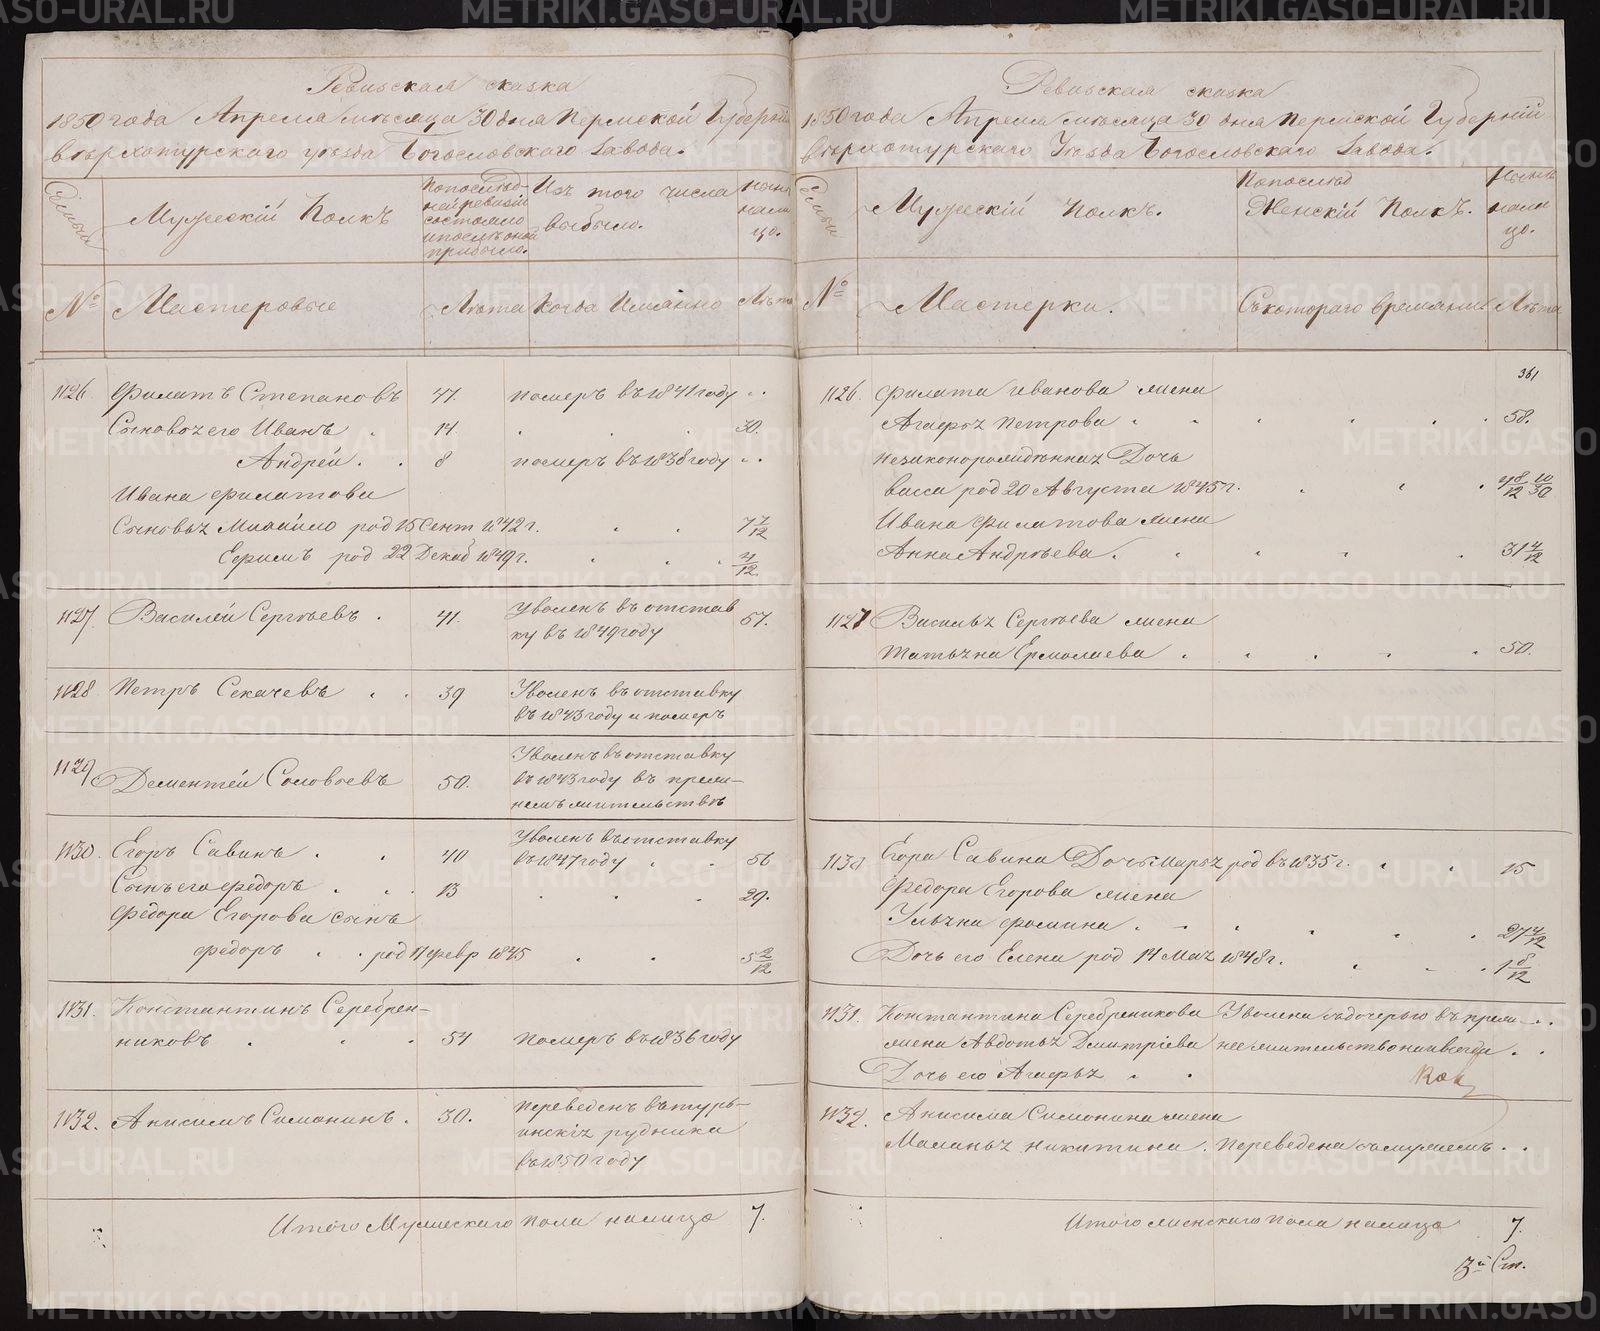 Ревизская сказка
1850 года Апреля месяца 30 дня Пермской Губерніи
Верхотурскаго уезда Богословскаго Завода.
Семьи
Мужескій Полкъ
По послед-
ней ревизіи
состояло
и после оной
прибыло.
Изъ того числа
выбыло.
Ныне
нали
цо.
№
Мастеровые
Лета
Когда Имянно
Лета
1126. Филатъ Степановъ 47. померъ въ 1841 году
Сыновья его Иванъ 14. 30.
Андрей 8 померъ въ 1838 году
Ивана Филатова
Сыновья Михайло род 15 Сент 1842 г. 7 7/12
Ефимъ род 22 Декаб 1849 г. 4/12
1127. Василей Сергеевъ 41. Уволенъ въ отстав 57.
ку въ 1849 году
1128 Петръ Секачевъ 39 Уволенъ въ отставку
въ 1843 году и померъ
1129 Дементей Соловьевъ 50. Уволенъ въ отставку
въ 1843 году
1130. Егоръ Савинъ 40 Уволенъ въ отставку
въ 1847 году 56
Сынъ его Федоръ 13 29.
Федора Егорова сынъ
Федоръ род 17 февр 1845 5 2/12
1131. Константинъ Серебрен-
никовъ 54 Померъ въ 1836 году
1132. Анисимъ Симонинъ. 30. Переведенъ въ Турь-
инскія рудники
въ 1850 году
Итого Мужескаго пола налицо 7.
Ревизская сказка
1850 года Апреля месяца 30 дня Пермской Губерніи
Верхотурскаго Уезда Богословскаго Завода.
Семьи
Мужескій Полкъ.
По послед
Женскій Полкъ.
Ныне
нали
цо.
№
Мастерки.
Съ котораго времяни
Лета
361
1126. Филата Иванова жена
Агафья Петрова 58.
Незаконорожденная Дочь
Васса род 20 Августа 1845 г. 4 8/12 10/30
Ивана Филатова жена
Анна Андреева. 31 4/12
1127 Василья Сергеева жена
Татьяна Ермолаева 50.
1130 Егора Савина Дочь Марья род въ 1835 г. 15
Федора Егорова жена
Ульяна Фомина 27 4/12
Дочь его Елена род 14 Мая 1848 г. 1 8/12
1131. Константина Серебреникова Уволена съ дочерью въ
жена Авдотья Дмитріева
Дочь его Агафья
1132. Анисима Симонина жена
Маланья Никитина. Переведена съ мужемъ.
Итого женскаго пола налицо 7.
METRIKI.GASO-URAL.RU